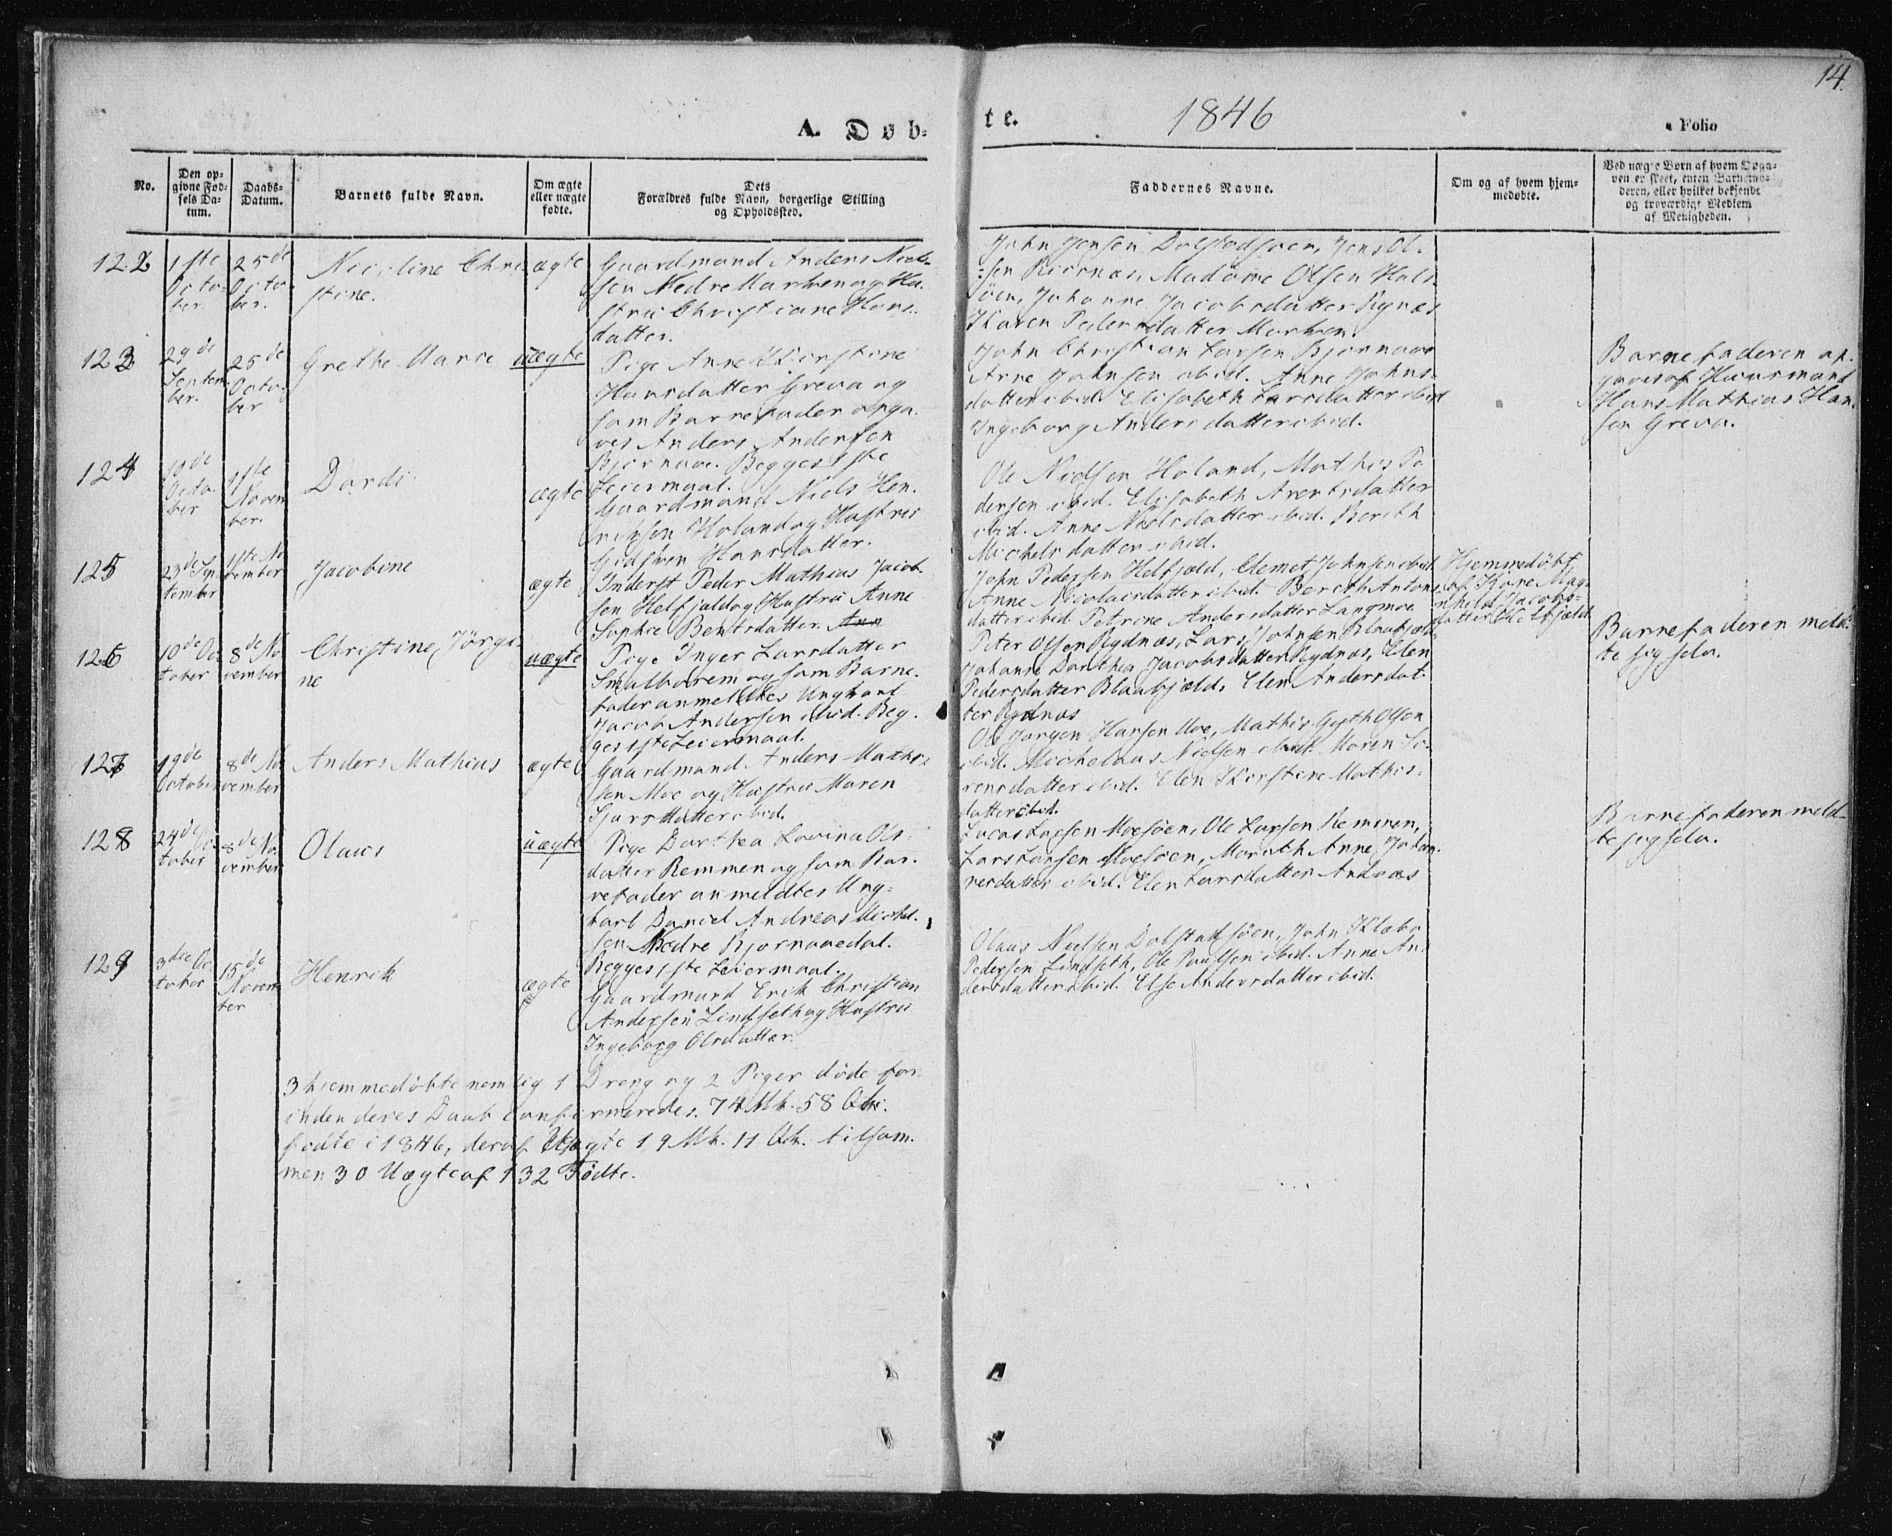 14.
A. Døb-
te.
1846
Folio
No.
Den op-
givne Fød-
sels Da-
tum.
Daabs-
Datum.
Barnets fulde Navn.
Om ægte
eller uægte
fødte.
Dets
Forældres fulde Navn, borgerlige Stilling
og Opholdssted.
Faddernes Navne.
Om og af hvem hjem-
medøbte.
Ved uægte Børn af hvem Opga-
ven er skeet, enten Barnemo-
deren, eller hvilket bekjendt
og troværdigt Medlem
af Menigheden.
122
1ste
Octo-
ber.
25de
Octo-
ber.
Nicoline Chri
stine.
ægte
Gaardmand Anders Niel-
sen Nedre Marken og Hu-
stru Christiane Hans-
datter.
John Jensen Dolstadsøen, Jens Ol-
sen, Madame Olsen Hals-
øen, Johanne Jacobsdatter Rynæs
Karen Pedersdatter Marken.
123
29de
Septem-
ber.
25de
Octo-
ber
Grethe Marie
uægte
Pige Anne Kirstine
Hansdatter Greva og
som Barnefader opga-
ves Anders Andersen
Bjørnaae. Begges 1ste
Leiermaal.
John Christian Larsen Bjørnaae
Arne Johnsen ibid. Anne Johns-
datter ibid. Elisabeth Larsdatter ibid
Ingeborg Andersdatter ibid.
Barnefaderen op-
gaves af Huusmand
Hans Mathias Han-
sen Greva.
124
Octo-
ber
1ste
Novem
ber.
Dordi
ægte
Gaardmand Niels Hen-
riksen Holand og Hustru
Hansdatter.
Ole Nielsen Holand, Mathis Pe
dersen ibid. Elisabeth Arentsdatter
ibid. Anne Nielsdatter ibid. Berith
Michelsdatter ibid.
125
23de Sep
tember
1ste No
vember
Jacobine
ægte
Inderst Peder Mathias Jacob-
sen Helfjeld og Hustru Anne
Sophie Bentsdatter. Ann
John Pedersen Helfjeld, Clemet Johnsen ibid.
Anne Nicolaisdatter ibid. Berith Antons
datter ibid Petrine Andersdatter Langmoe
Hjemmedøbt
af Kone Mag-
nhild Jacobs-
datter Helfjeld.
126
10de Oc
tober
8de No
vember
Christine Jørgi
ne
uægte
Pige Inger Larsdatter
Smalhorem og som Barne-
fader anmeldtes Ungkarl
Jacob Andersen ibid. Beg-
ges 1ste Leiermaal.
Peter Olsen Rydnæs, Lars Johnsen Blaafjeld,
Johanne Dorthea Jacobsdatter Rydnæs, Elen
Pedersdatter Blaafjeld, Elen Andersdat-
ter Rydnæs
Barnefaderen meld-
te sig selv.
127
19de
October
8de No
vember
Anders Mathias
ægte
Gaardmand Anders Mathi-
sen Moe og Hustru Maren
Sjursdatter ibid.
Ole Jørgen Hansen Moe, Mathis Gjeth Olsen
ibid. Michelaus Nielsen ibid. Maren Sø-
rensdatter ibid. Elen Kirstine Mathis-
datter ibid.
128
24de Oc
tober
8de No
vember
Olaus
uægte
Pige Dorthea Lovina Ols-
datter Remmen og som Bar-
nefader anmeldtes Ung-
karl Daniel Andreas Michel-
sen Nedre Bjørnaaedal.
Begges 1ste Leiermaal.
Lucas Larsen Moesøen, Ole Larsen Remmen,
Lars Larsen Moesøen, Marith Anne Johan-
nesdatter ibid. Elen Larsdatter Andaas
Barnefaderen meld-
te sig selv.
129
3die Oc
tober
15de
Novem
ber
Henrik
ægte
Gaardmand Erik Christian
Andersen Lindseth og Hustru
Ingeborg Olsdatter.
Olaus Nielsen Dolstadsøen, John Klæbo
Pedersen Lindseth, Ole Paulsen ibid. Anne An
dersdatter ibid. Else Andersdatter ibid.
3 hjemmedøbte nemlig 1 Dreng og 2 Piger døde for-
inden deres Daab confirmeredes. 74 Mk. 58 Qk.
fødte i 1846, deraf Uægte 19 Mk. 11 Qk. tilsam-
men 30 Uægte af 132 Fødte.